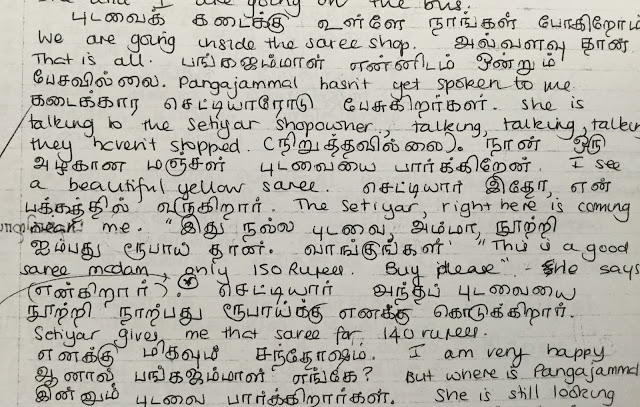 and I are going on the bus.
புடவைக் கடைக்கு உள்ளே நாங்கள் போகிறோம்
We are going inside the saree shop. அவ்வளவு தான்.
That is all. பங்கஜம்மாள் என்னிடம் ஒன்றும்
பேசவில்லை. Pangajammal hasn't yet spoken to me.
கடைக்கார செட்டியாரோடு பேசுகிறார்கள். She is
talking to the Setiyar shopowner., talking, talking, talking
they haven't stopped. (நிறுத்தவில்லை). நான் ஒரு
அழகான மஞ்சள் புடவையை பார்க்கிறேன். I see
a beautiful yellow saree. செட்டியார் இதோ, என்
பக்கத்தில் வருகிறார். The Setiyar, right here is coming
near me. "இது நல்ல புடவை, அம்மா, நூற்றி
ஐம்பது ரூபாய் தான். வாங்குங்கள்" "This is a good
saree madam, only 150 Rupees. Buy please" - he says
(என்கிறார்). செட்டியார் அந்தப் புடவையை
நூற்றி நாற்பது ரூபாய்க்கு எனக்கு கொடுக்கிறார்.
Setiyar gives me that saree for 140 rupees.
எனக்கு மிகவும் சந்தோஷம். I am very happy
ஆனால் பங்கஜம்மாள் எங்கே? But where is Pangajammal
இன்னும் புடவை பார்க்கிறார்கள். She is still looking